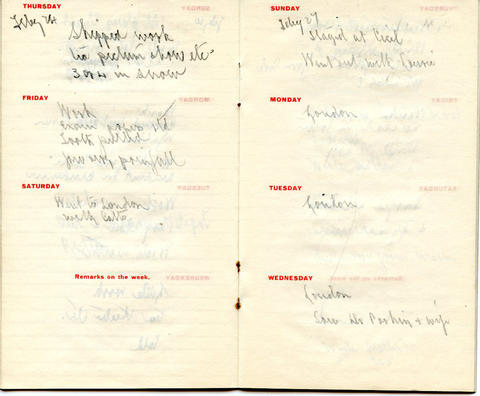 THURSDAY
Feby 24
Skipped work
to picture show etc
in snow
FRIDAY
Work
Tooth pulled
very painfull
SATURDAY
Went to London
with
Remarks on the week.
SUNDAY
Feby 27
Stayed at Cecil
Went out with
MONDAY
London
TUESDAY
London
WEDNESDAY
London
Saw Dr Parkin + wife